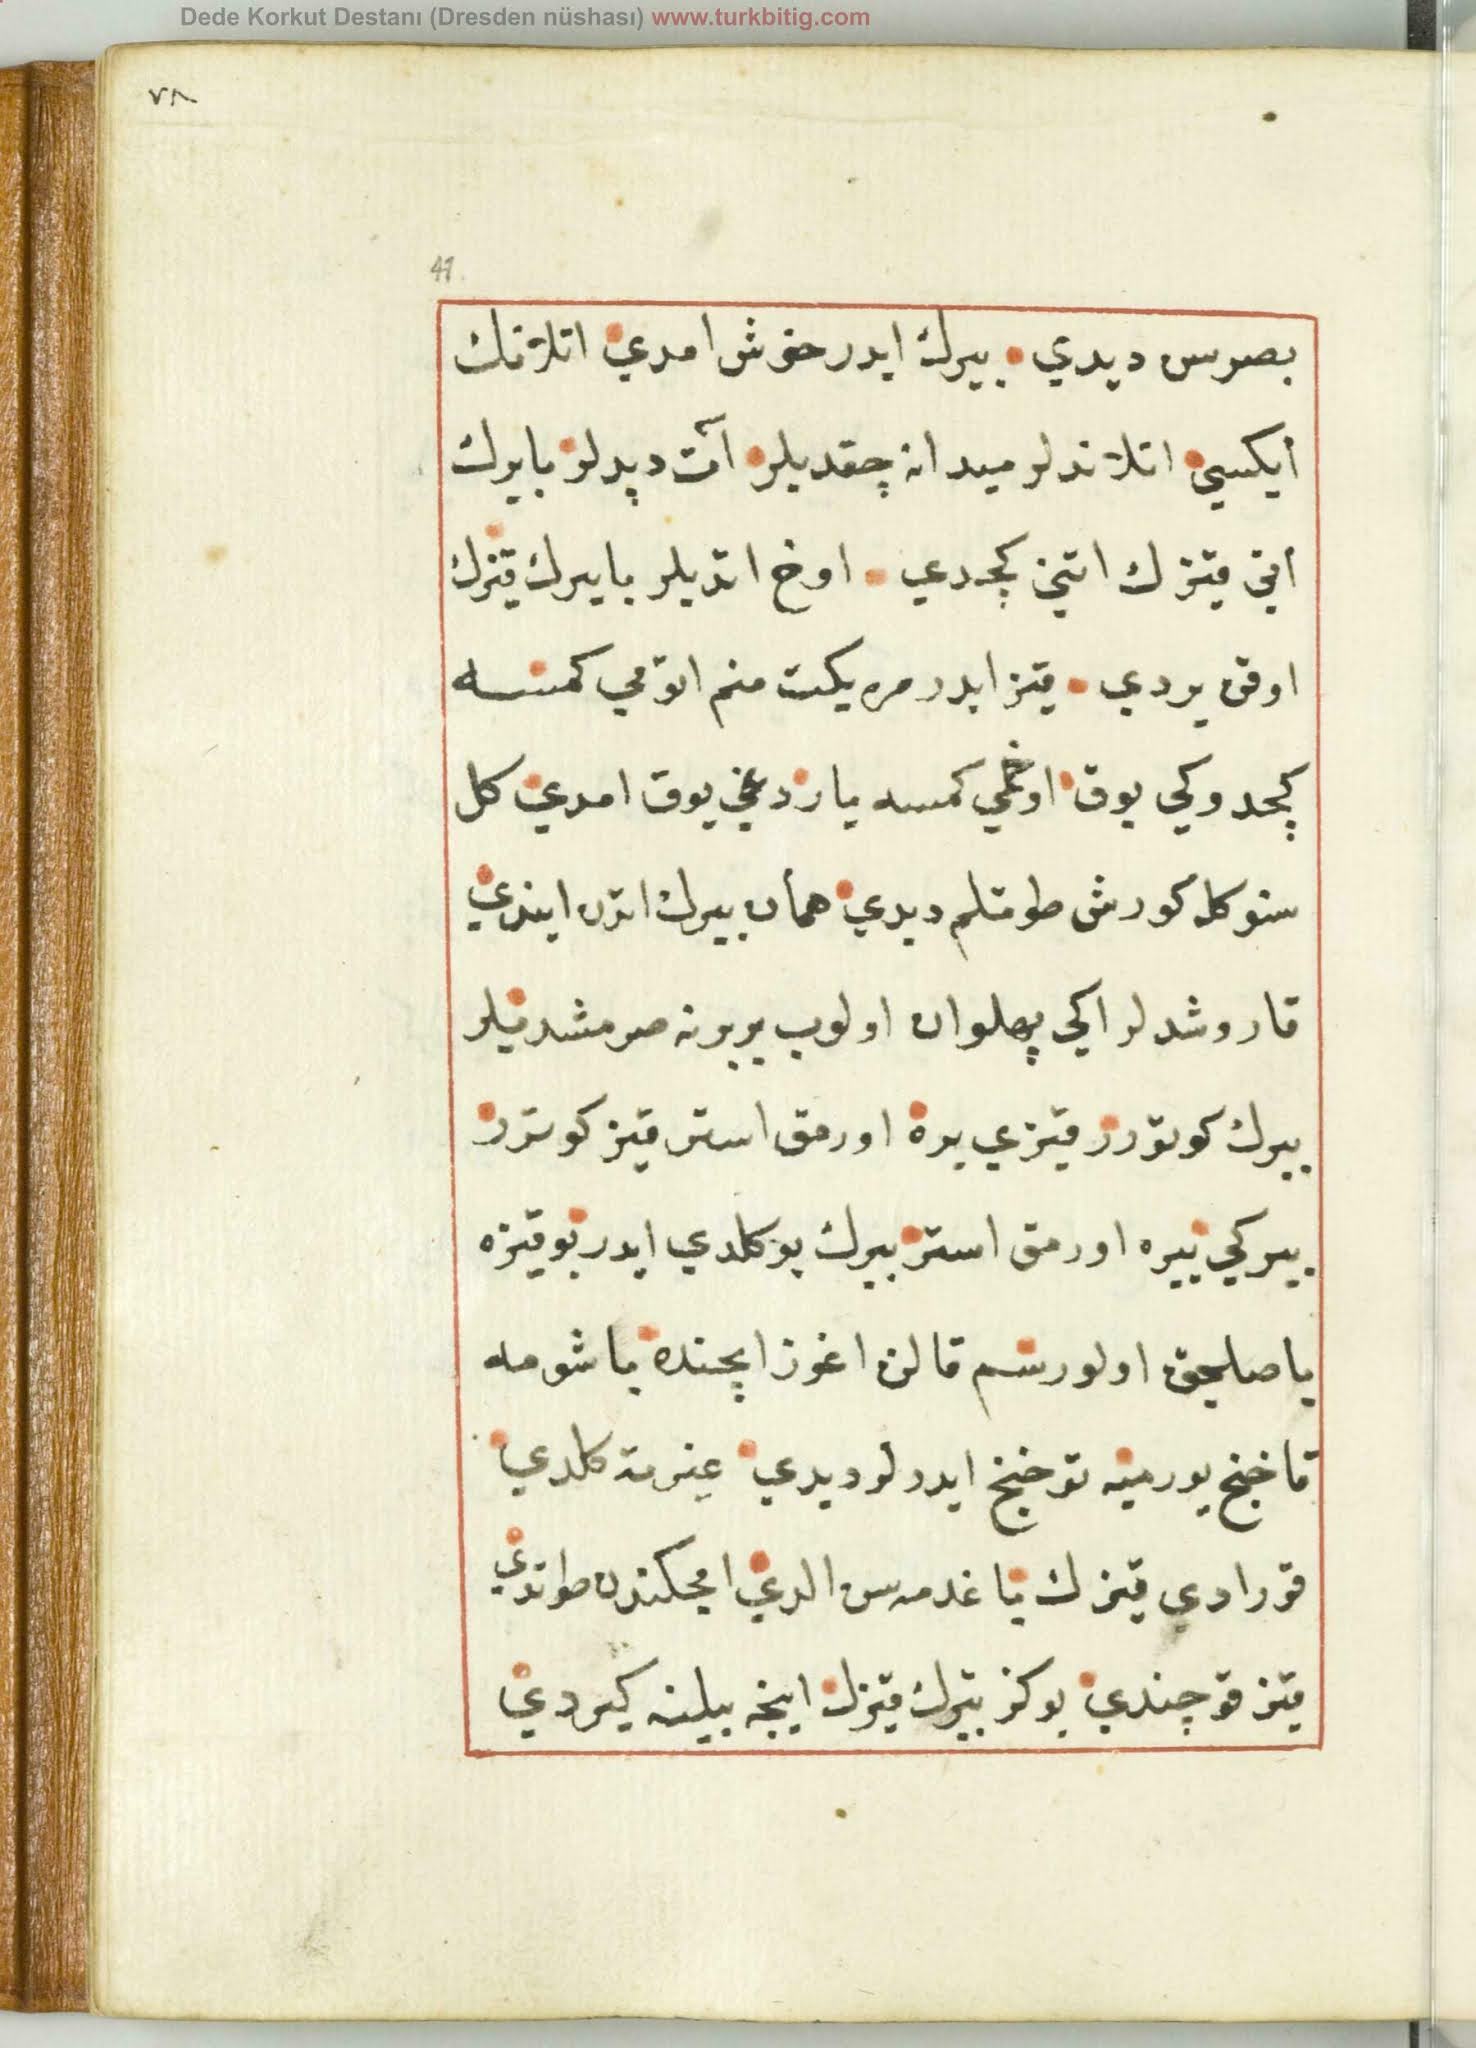 Dede Korkut Destanı (Dresden nüshası) www.turkbitig.com
٧٨
41
بصوس ديدي بيرك ايدر خوش امدي اتلانك
ايكسي اتلاندلر ميدانه چقديلر آت دپدلر بايرك
اتي قيزك اتني كچدي اوخ اتديلر باييرك قيزك
اوقن يردي قيز ايدر مره يكت منم اتومي كمسنه
كچدوكي يوق اوخمي كمسه ياردغي يوق امدي كل
سنوكله كورش طوتلم ديدي همان بيرك اتدن ايندي
قاروشدلر اكي پهلوان اولوب بربرنه صرمشديلر
بيرك كوتورر قيزي يره اورمق استر قيز كوتررر
بيركي ييره اورمق استر بيرك بوكلدي ايدر بو قيزه
ياصلجق اولورسم قالن اغوز ايچنده باشومه
قاخنج يوزمه توخنج ايدرلر ديدي غيرته كلدي
قورادي قيزك باغدمه سن الدي امجكندن طوتدي
قيز قوچندي بو كز بيرك قيزك اينجه بيلنه كيردي